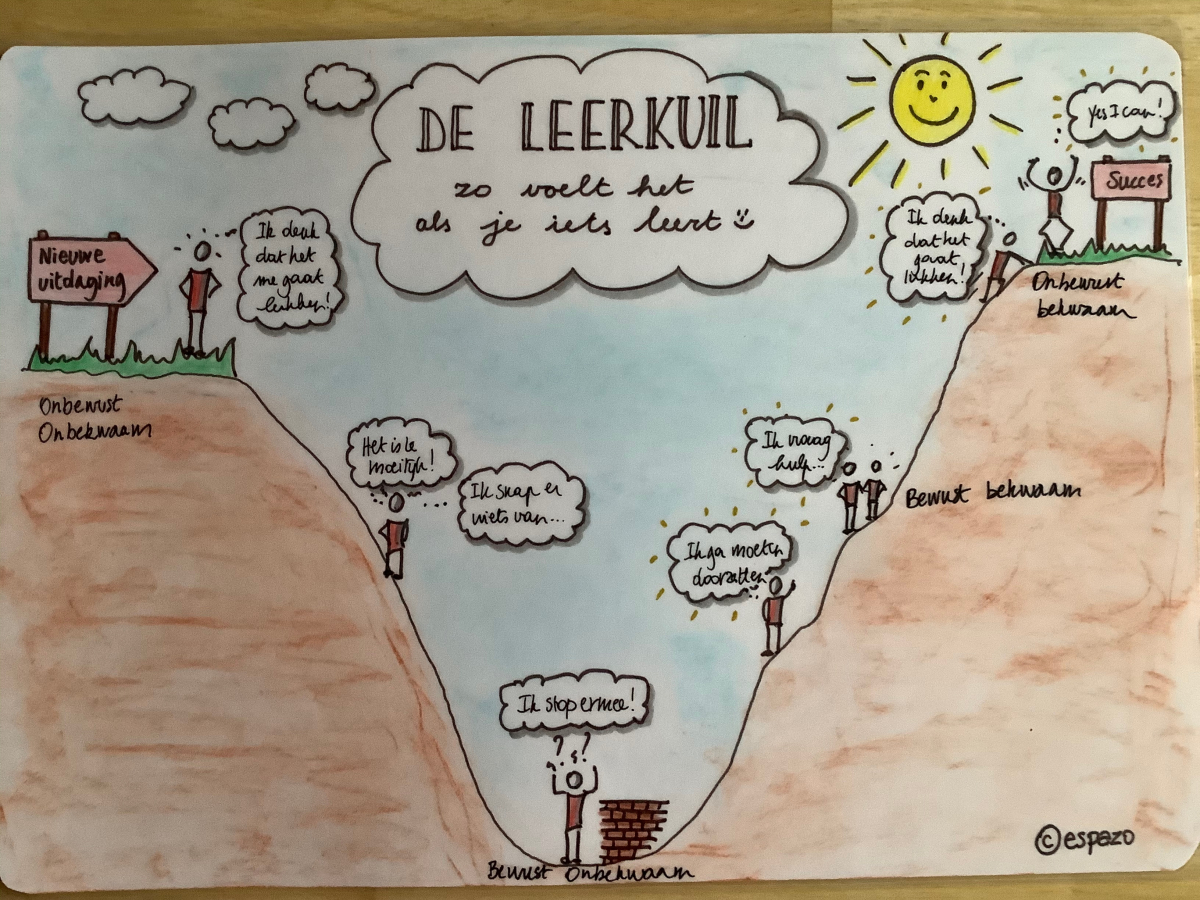 DE LEERKUIL
zo voelt het
als je iets leert
Nieuwe
uitdaging
Ik denk
dat het
me gaat
lukken!
Onbewust
Onbekwaam
Het is te
moeilijk!
Ik snap er
niets van...
Ik stop ermee!
? ?
Bewust Onbekwaam
Ik ga moeten
doorzetten
Ik vraag
hulp...
Bewust bekwaam
Ik denk
dat het
gaat
lukken!
Yes I can!
Succes
Onbewust
bekwaam
©espazo